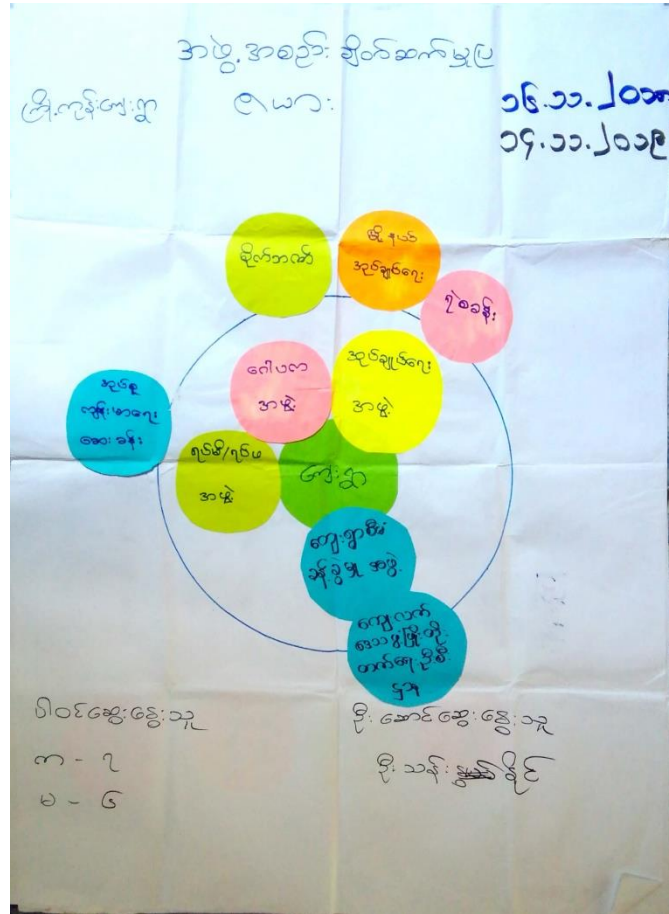 အဖွဲ့အစည်း ချိတ်ဆက်မှုပြ
ကြို့ကုန်းကျေးရွာ ဇယား
၁၆.၁၁.၂၀၁၈
၁၄.၁၁.၂၀၁၉
စိုက်ဘဏ်
မြို့နယ်
အုပ်ချုပ်ရေး
ရဲစခန်း
ဂေါပက
အဖွဲ့
အုပ်ချုပ်ရေး
အဖွဲ့
အုပ်စု
ကျန်းမာရေး
ဆေးခန်း
ရပ်မိ/ရပ်ဖ
အဖွဲ့
ကျေးရွာ
ကျေးရွာစီမံ
ခန့်ခွဲမှု အဖွဲ့
ကျေးလက်
ဒေသဖွံ့ဖြိုးတိုး
တက်ရေးဦးစီး
ဌာန
ပါဝင်ဆွေးနွေးသူ
ကျာ - ၇
မ - ၆
ဦးဆောင်ဆွေးနွေးသူ
ဦးသန်း နိုင်